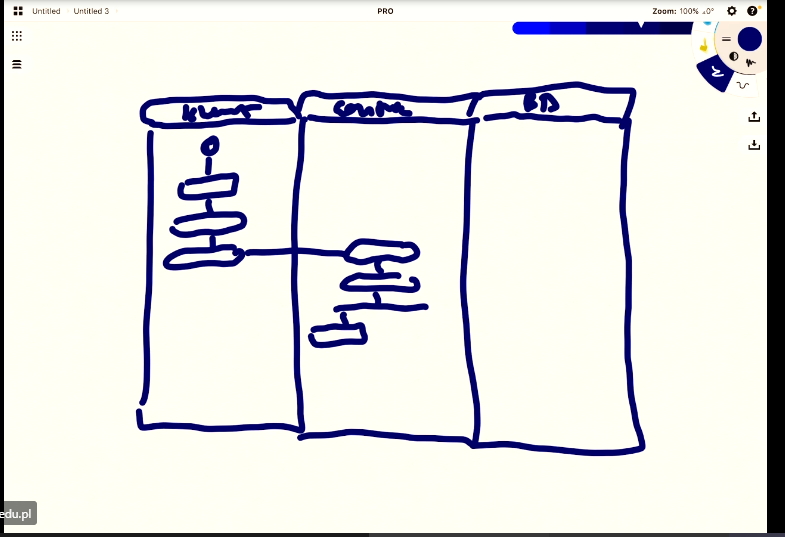 Untitled Untitled 3
PRO
Zoom: 100% 0°
Klient
BD
edu.pl